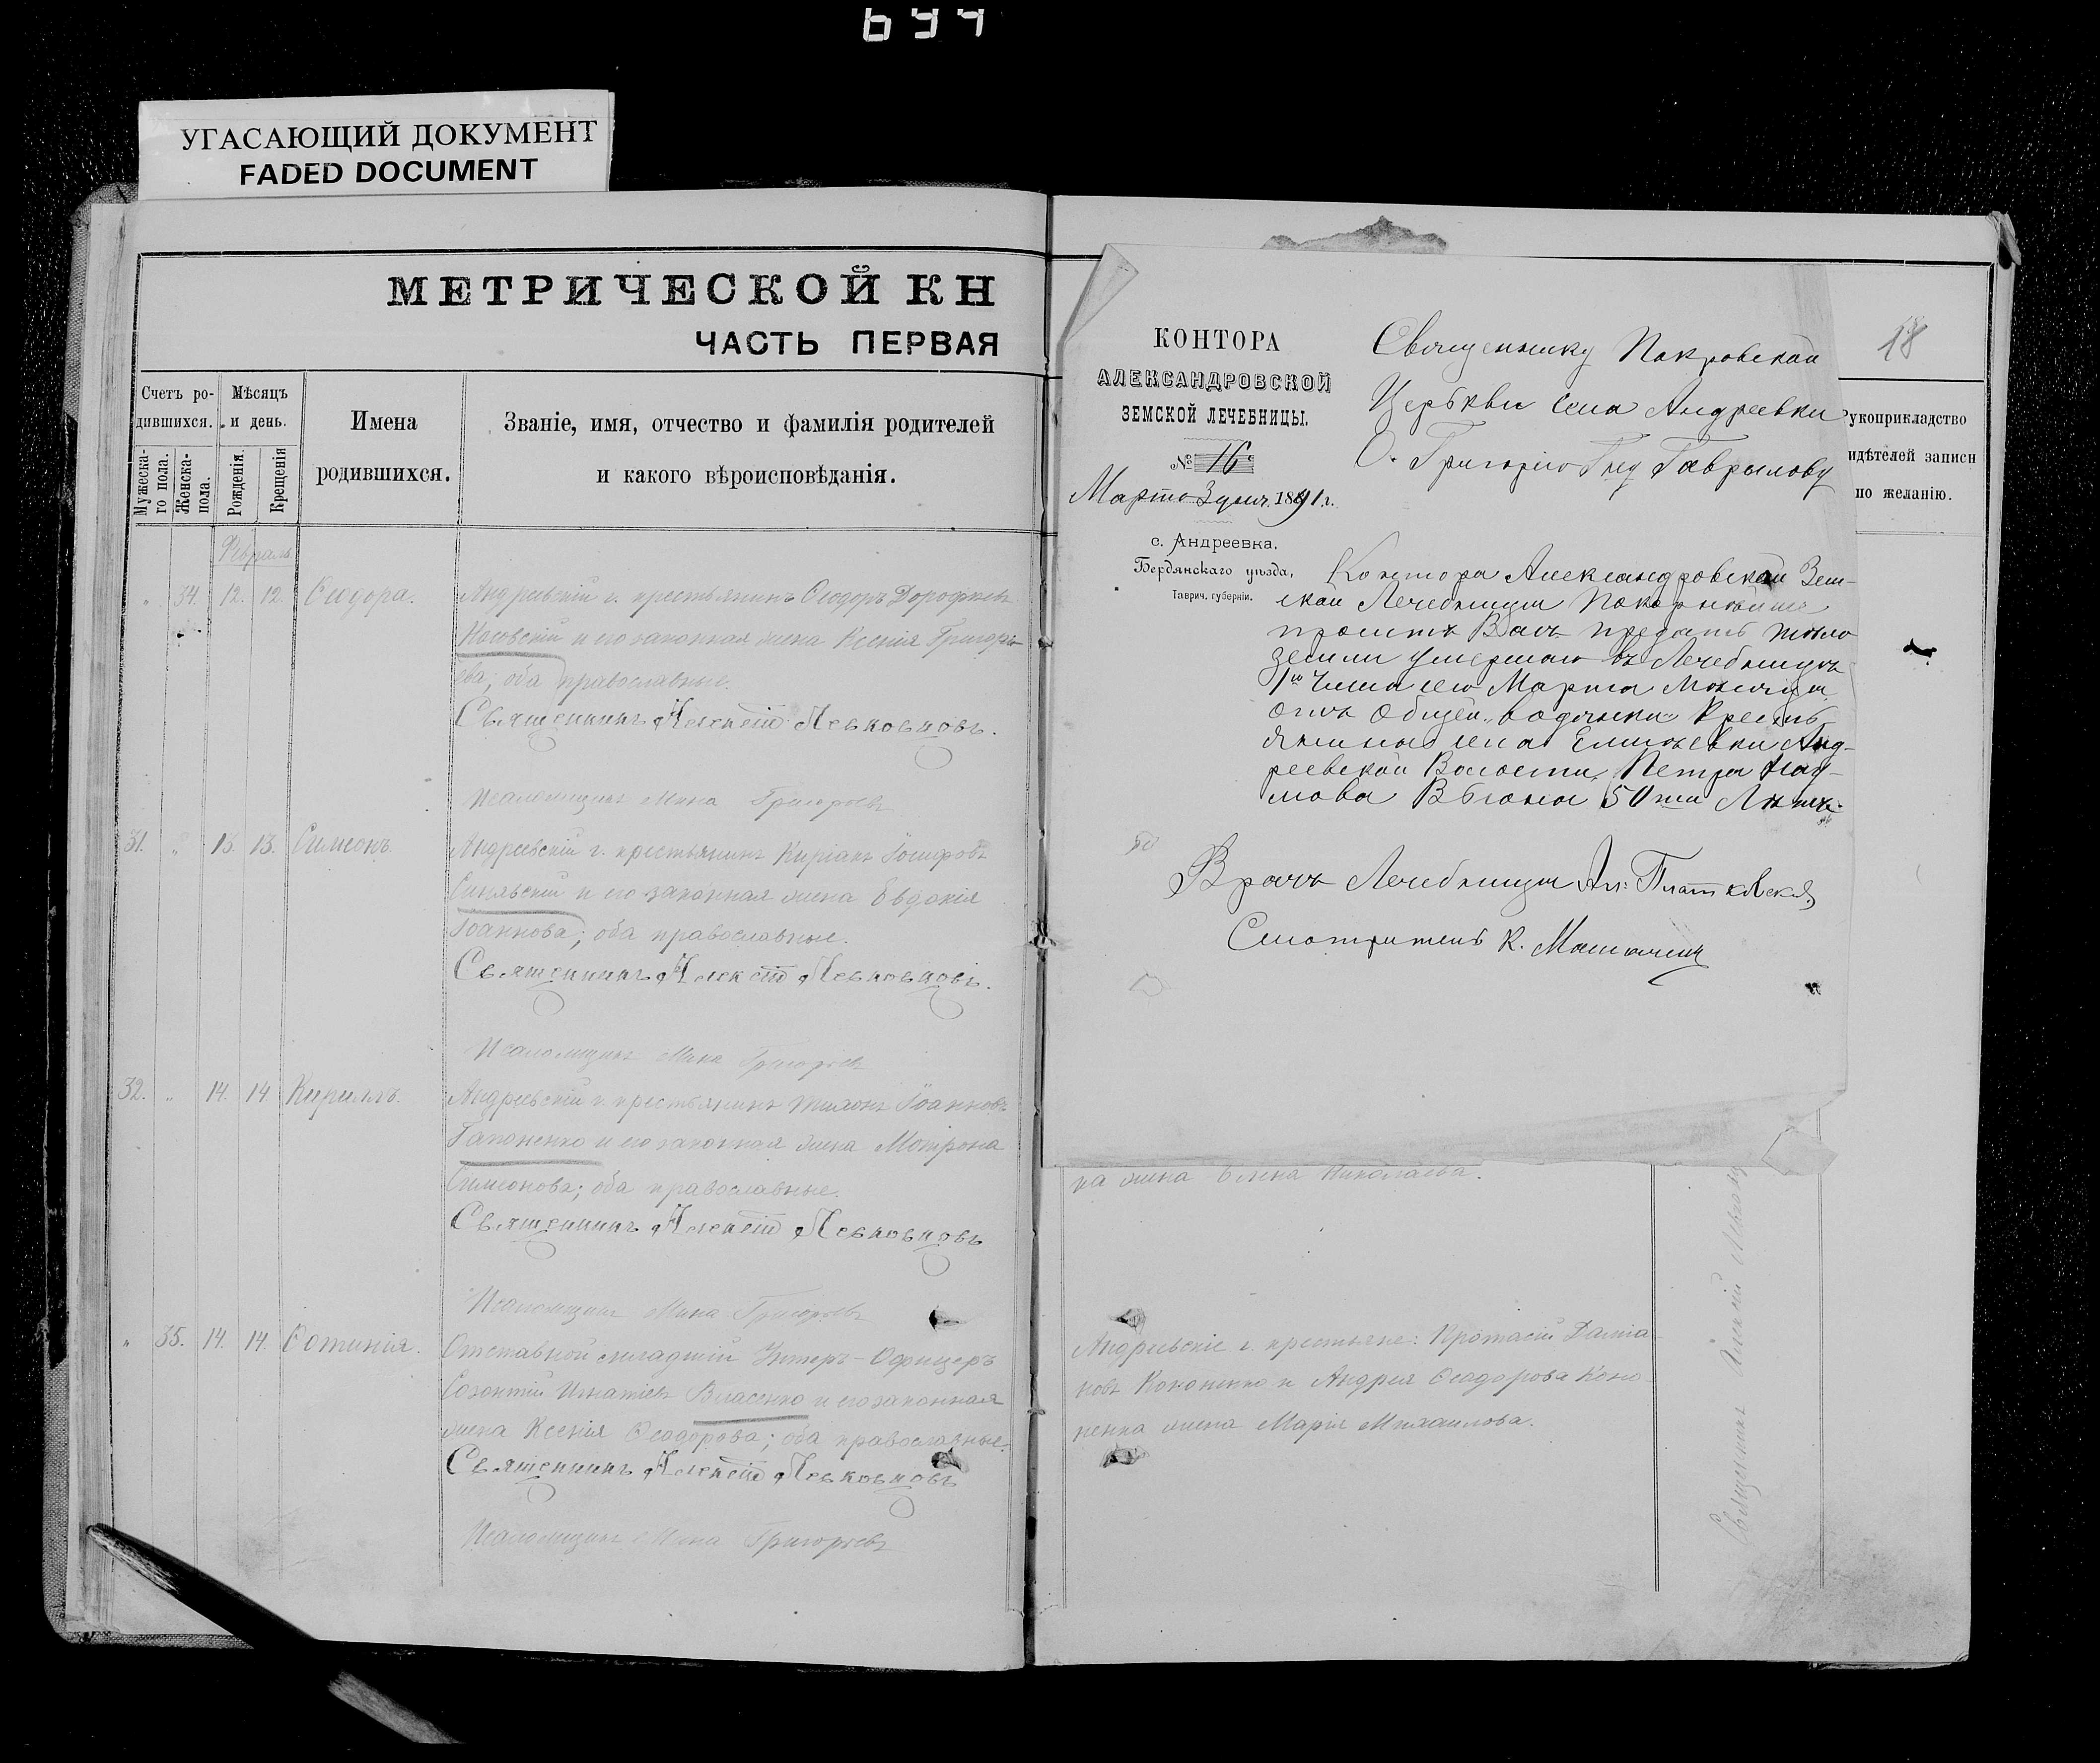 644
УГАСАЮЩИЙ ДОКУМЕНТ
FADED DOCUMENT
МЕТРИЧЕСКОЙ КН
ЧАСТЬ ПЕРВАЯ
Счетъ ро-
дившихся.
Мѣсяцъ
и день.
Мужеска-
го пола.
Женска-
пола.
Рожденія.
Крещенія
Имена
родившихся.
Званіе, имя, отчество и фамилія родителей
и какого вѣроисповѣданія.
Февраль
„ 34. 12. 12. Сидора. Андреевскій г. крестьянинъ Ѳеодоръ Дорофеевъ
Носовскій и его законная жена Ксенія Григорь-
ева; оба православные.
Священникъ Алексій Левковцовъ.
Псаломщикъ Мина Григорьевъ
31. „ 13. 13. Симеонъ. Андреевскій г. крестьянинъ Киріакъ Іосифовъ
Синявскій и его законная жена Евдокія
Іоаннова; оба православные.
Священникъ Алексій Левковцовъ.
Псаломщикъ Мина Григорьевъ
32. „ 14. 14 Кириллъ. Андреевскій г. крестьянинъ Іоанновъ
Гапоненко и его законная жена Мотрона
Симеонова; оба православные.
Священникъ Алексій Левковцовъ
Псаломщикъ Мина Григорьевъ
„ 35. 14. 14. Фотинія. Отставной младшій Унтеръ-Офицеръ
Созонтій Игнатіевъ Власенко и его законная
жена Ксенія Ѳеодорова; оба православные.
Священникъ Алексій Левковцовъ
Псаломщикъ Мина Григорьевъ
КОНТОРА
АЛЕКСАНДРОВСКОЙ
ЗЕМСКОЙ ЛЕЧЕБНИЦЫ.
№ 16
Марта 3 дня 1891 г.
с. Андреевка,
Бердянскаго уѣзда,
Таврич. губерніи.
Священнику Покровской
Церькви села Андреевки
О. Григорію Гаврылову
Контора Александровской Зем-
ской Лечебницы покорнѣйше
проситъ Васъ предать тѣло
земли умершаго въ Лечебницѣ
1го числа сего Марта мѣсяца
отъ общей водянки Кресть-
янина села Елисѣевки Анд-
реевской Волости, Петра Нау-
мова 50ти Лѣтъ.
Врачъ Лечебницы Ал: Платковская
Смотритель К.
18
укоприкладство
идѣтелей записи
по желанію.
на жена Елена Николаева.
Андреевскіе г. крестьяне: Протасій Даміа-
новъ Кононенко и Андрея Ѳеодорова Коно-
ненка жена Марія Михаилова.
Священникъ Алексій Левковцовъ